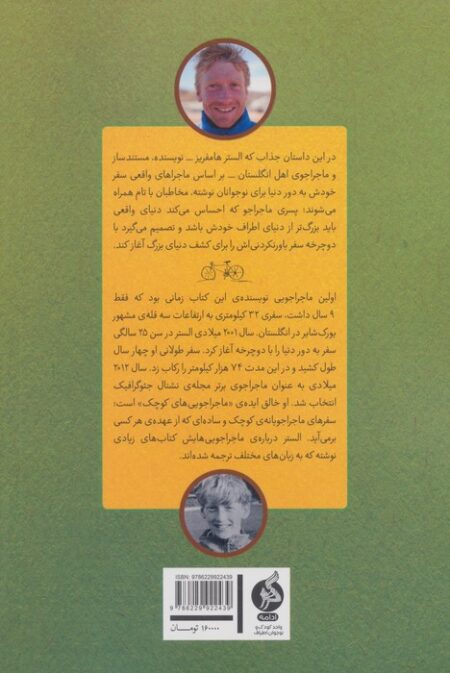 در این داستان جذاب که الستر هامفریز ــ نویسنده، مستندساز
و ماجراجوی اهل انگلستان ــ بر اساس ماجراهای واقعی سفر
خودش به دور دنیا برای نوجوانان نوشته، مخاطبان با تام همراه
می‌شوند؛ پسری ماجراجو که احساس می‌کند دنیای واقعی
باید بزرگ‌تر از دنیای اطراف خودش باشد و تصمیم می‌گیرد با
دوچرخه سفر باورنکردنی‌اش را برای کشف دنیای بزرگ آغاز کند.
اولین ماجراجویی نویسنده‌ی این کتاب زمانی بود که فقط
۹ سال داشت، سفری ۳۲ کیلومتری به ارتفاعات سه قله‌ی مشهور
یورک‌شایر در انگلستان. سال ۲۰۰۱ میلادی الستر در سن ۲۵ سالگی
سفر به دور دنیا را با دوچرخه آغاز کرد. سفر طولانی او چهار سال
طول کشید و در این مدت ۷۴ هزار کیلومتر را رکاب زد. سال ۲۰۱۲
میلادی به عنوان ماجراجوی برتر مجله‌ی نشنال جئوگرافیک
انتخاب شد. او خالق ایده‌ی «ماجراجویی‌های کوچک» است؛
سفرهای ماجراجویانه‌ی کوچک و ساده‌ای که از عهده‌ی هر کسی
برمی‌آید. الستر درباره‌ی ماجراجویی‌هایش کتاب‌های زیادی
نوشته که به زبان‌های مختلف ترجمه شده‌اند.
ISBN: 9786229922439
9 786229 922439
۱۶۰۰۰۰ تومـــان
ادامه
واحد کودک و
نوجوان اطراف